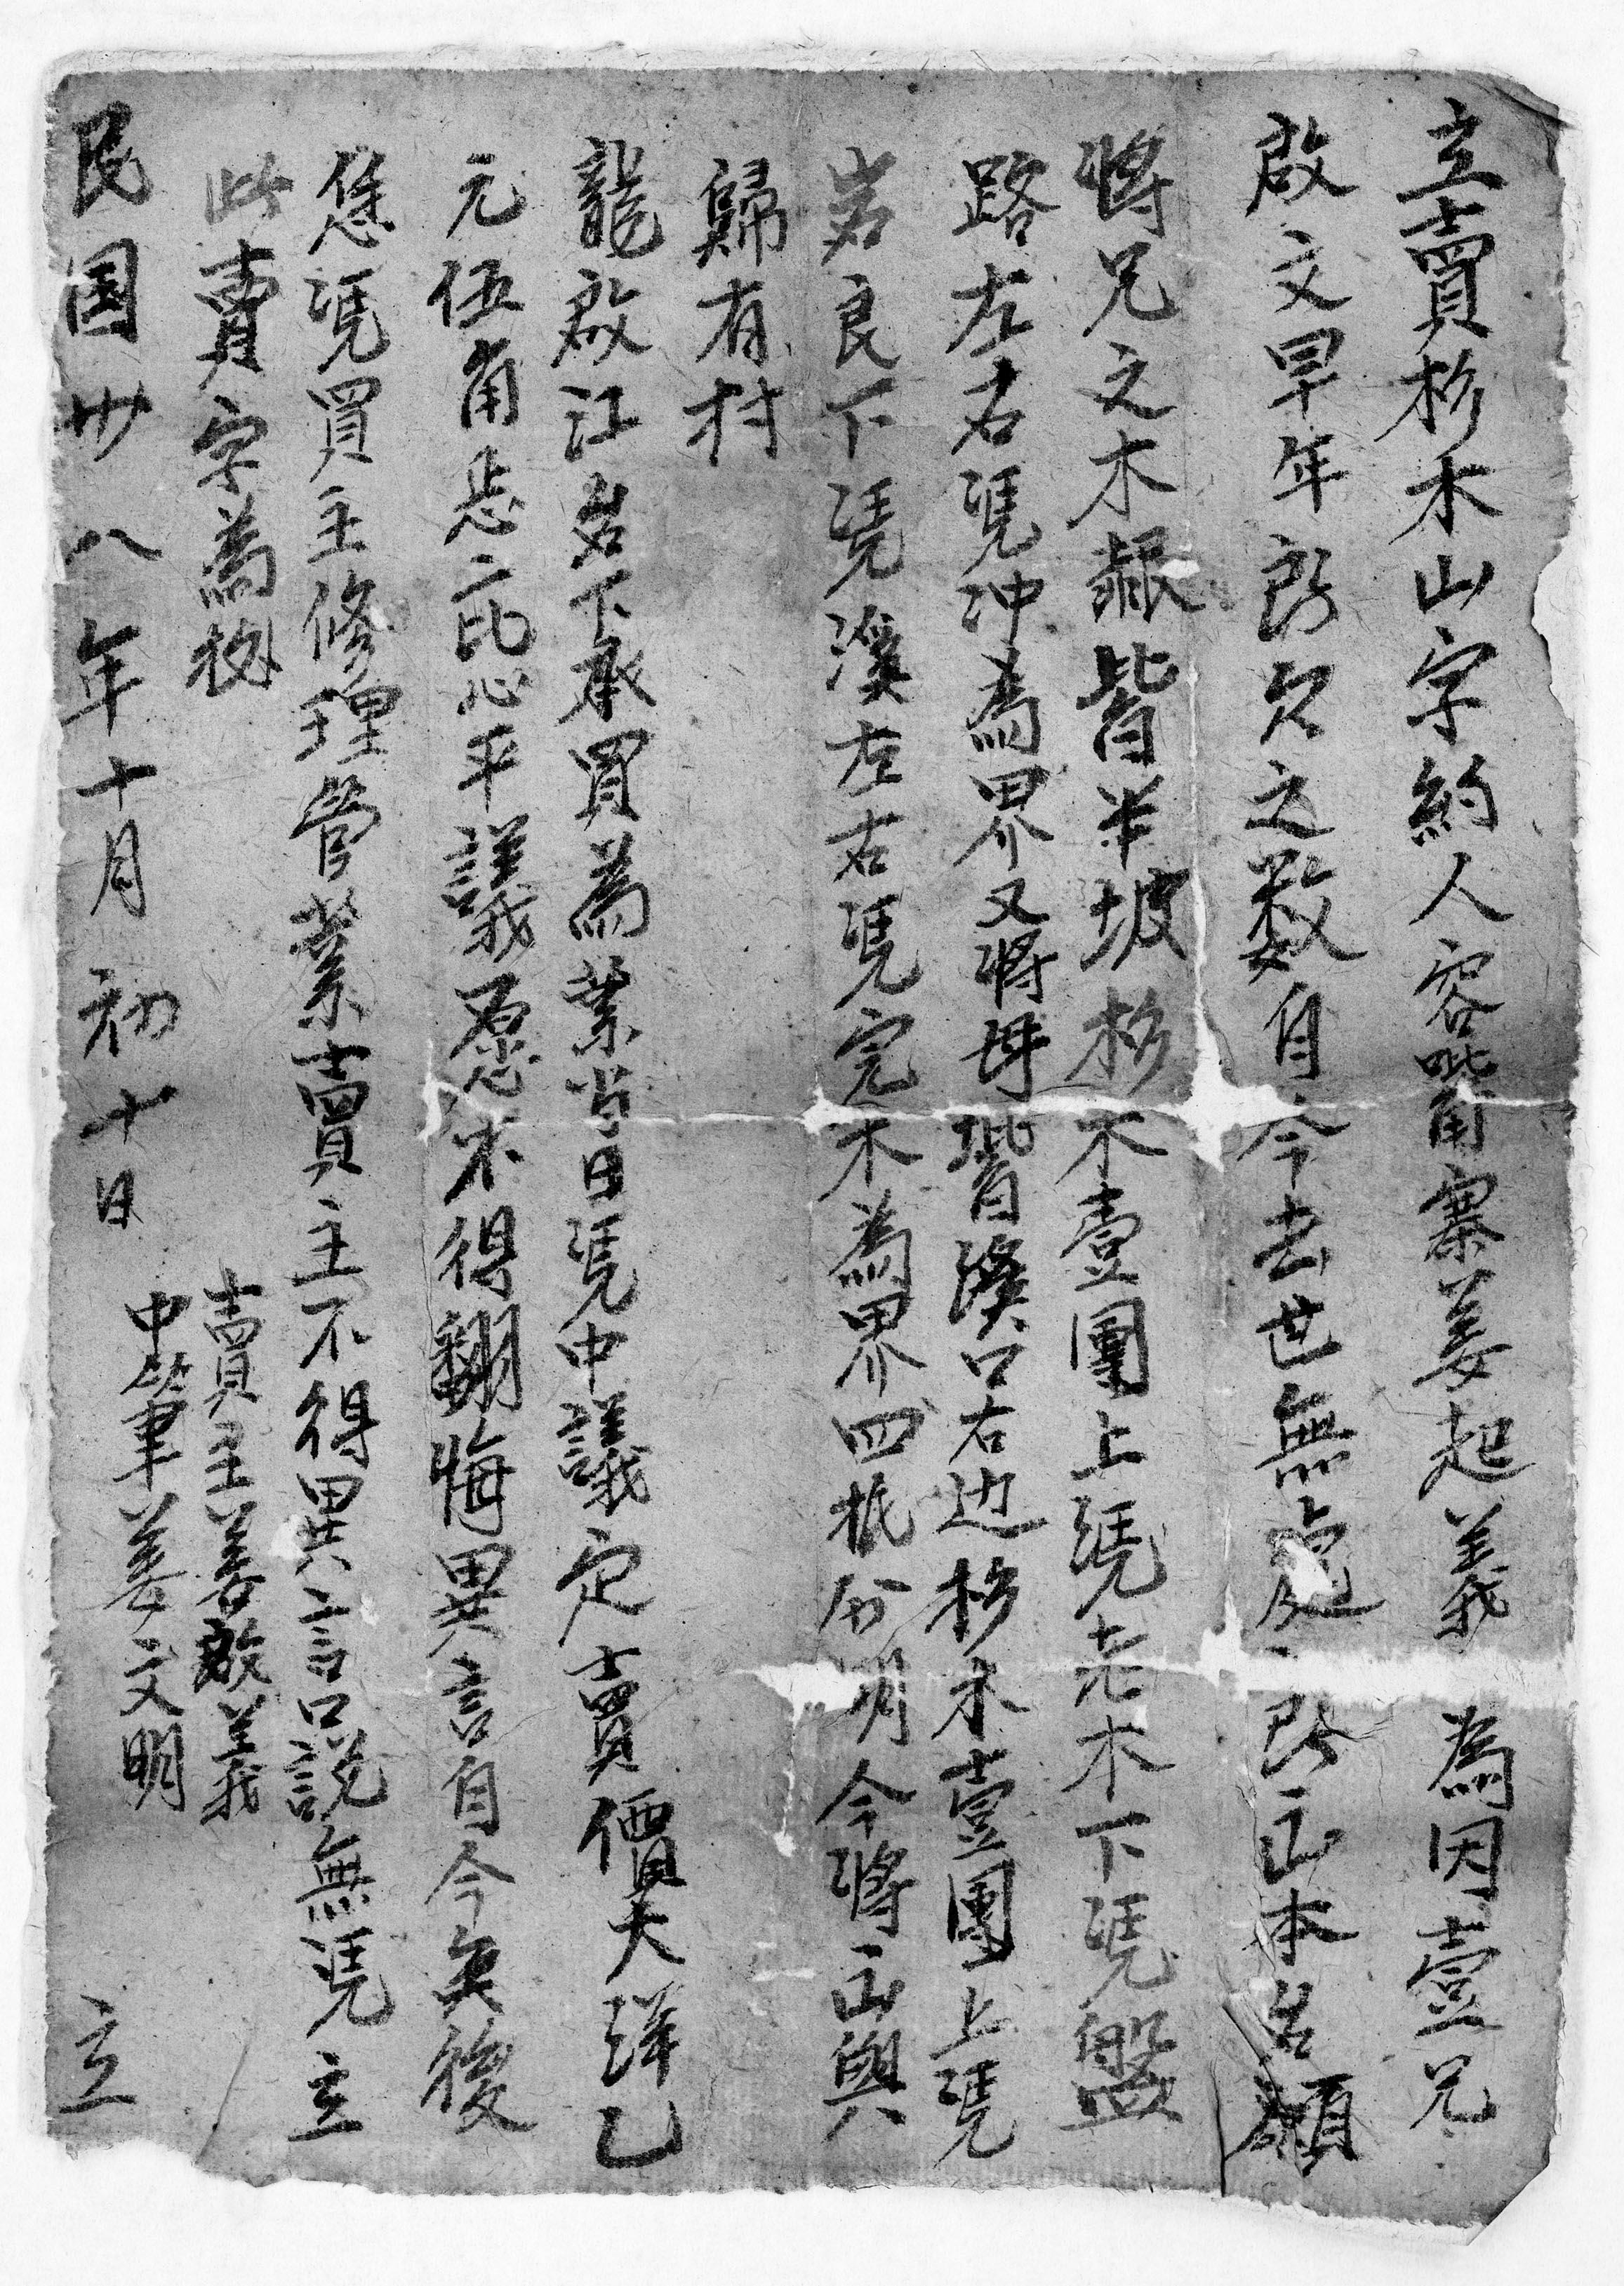 立賣杉木山字約人容嘴甭寨姜起義為因壹兄
啟文早年所欠之数自今去世無處所山本名願
將兄之木艱皆半坡杉木壹團上凴老木下凴盤
路左右凴冲為界又將毋堦溪口右边杉木壹團上凴
岩良下凴溪左右凴完木為界四抵分明今將山與
歸有村
龍啟江名下承買為業当日凴中議定賣價大洋乙
元伍角悬二比心平議愿不得翻悔異言自今矣後
恁凴買主修理管業賣主不得異言口説無凴立
此賣字為㨿
賣主姜啟義
中筆姜文明
民国卅八年十月初十日 立